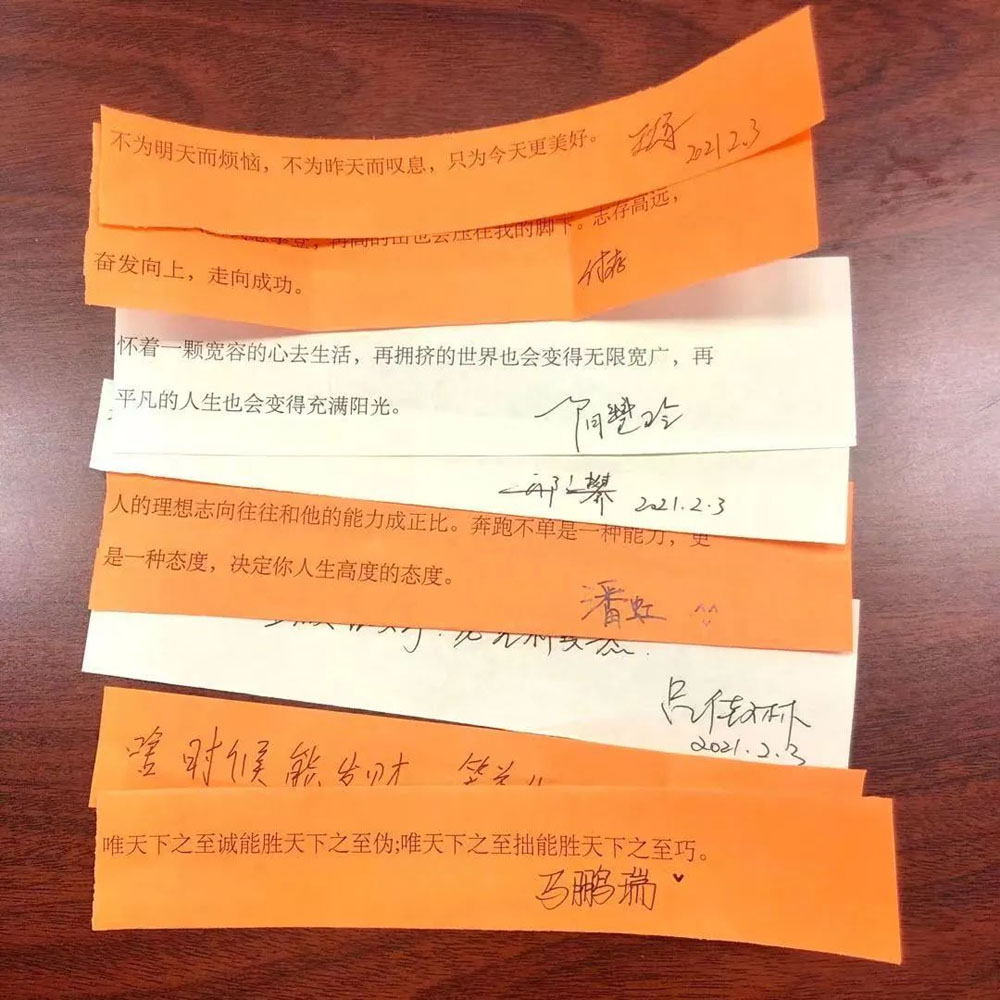 不为明天而烦恼，不为昨天而叹息，只为今天更美好。
2021.2.3
再高的山也会压在我的脚下。志存高远，
奋发向上，走向成功。
怀着一颗宽容的心去生活，再拥挤的世界也会变得无限宽广，再
平凡的人生也会变得充满阳光。
2021.2.3
人的理想志向往往和他的能力成正比。奔跑不单是一种能力，更
是一种态度，决定你人生高度的态度。
潘虹 ^^
吕佳林
2021.2.3
啥时候能发财
唯天下之至诚能胜天下之至伪;唯天下之至拙能胜天下之至巧。
马鹏瑞